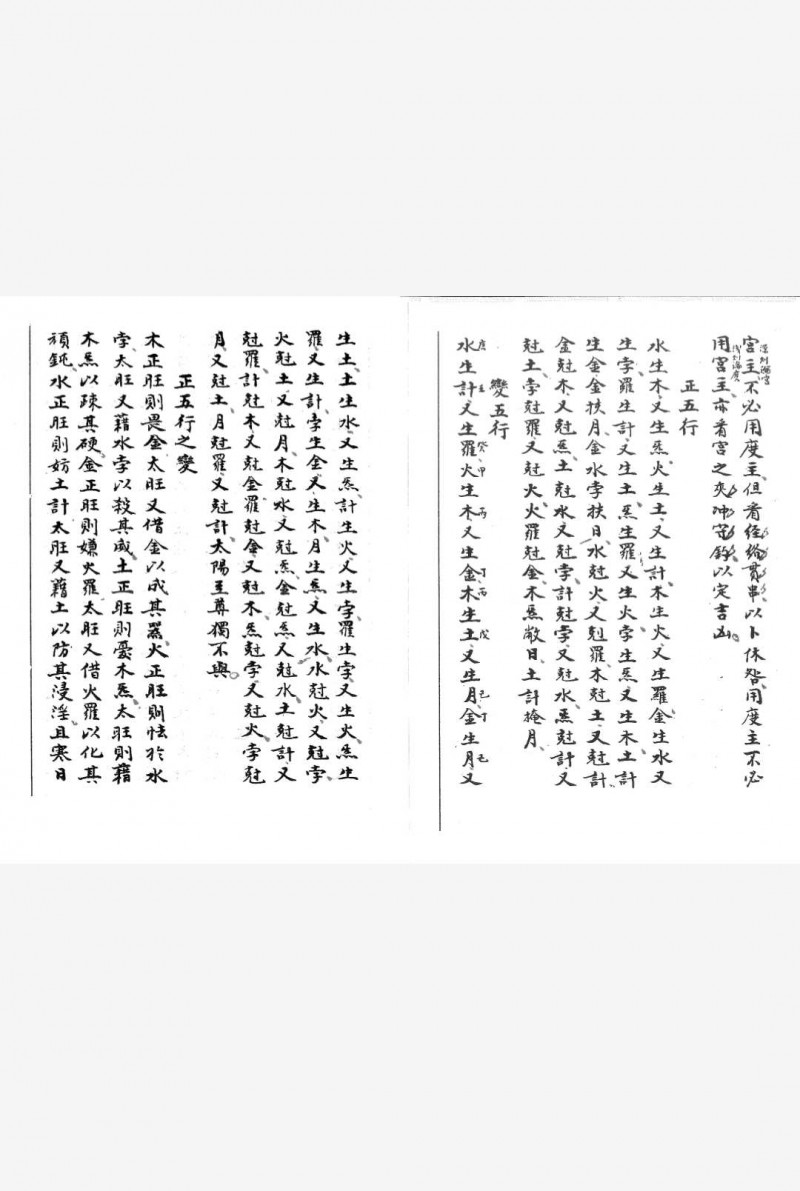 宮主不必用度主但看經綸貫串以卜休咎用度主不必
用宮主亦看宮之夾冲守錄以定吉凶
正五行
水生木又生炁火生土又生計木生火又生羅金生水又
生孛羅生計又生土炁生羅又生火孛生炁又生木土計
生金金扶月金水孛扶日水尅火又尅羅木尅土又尅計
金尅木又尅炁土尅水又尅孛計尅孛又尅水炁尅計又
尅土孛尅羅又尅火火羅尅金木炁敝日土計掩月
變五行
水生計又生羅火生木又生金木生土又生月金生月又
生土土生水又生炁計生火又生孛羅生孛又生火炁生
羅又生計孛生金又生木月生炁又生水水尅火又尅孛
火尅土又尅月木尅水又尅炁金尅炁又尅水土尅計又
尅羅計尅木又尅金羅尅金又尅木炁尅孛又尅火孛尅
月又尅土月尅羅又尅計太陽至尊獨不與
正五行之變
木正旺則畏金太旺又借金以成其噐火正旺則怯於水
孛太旺又藉水孛以殺其威土正旺則憂木炁太旺則藉
木炁以疎其硬金正旺則嫌火羅太旺又借火羅以化其
頑鈍水正旺則妨土計太旺又藉土以防其浸淫且寒日